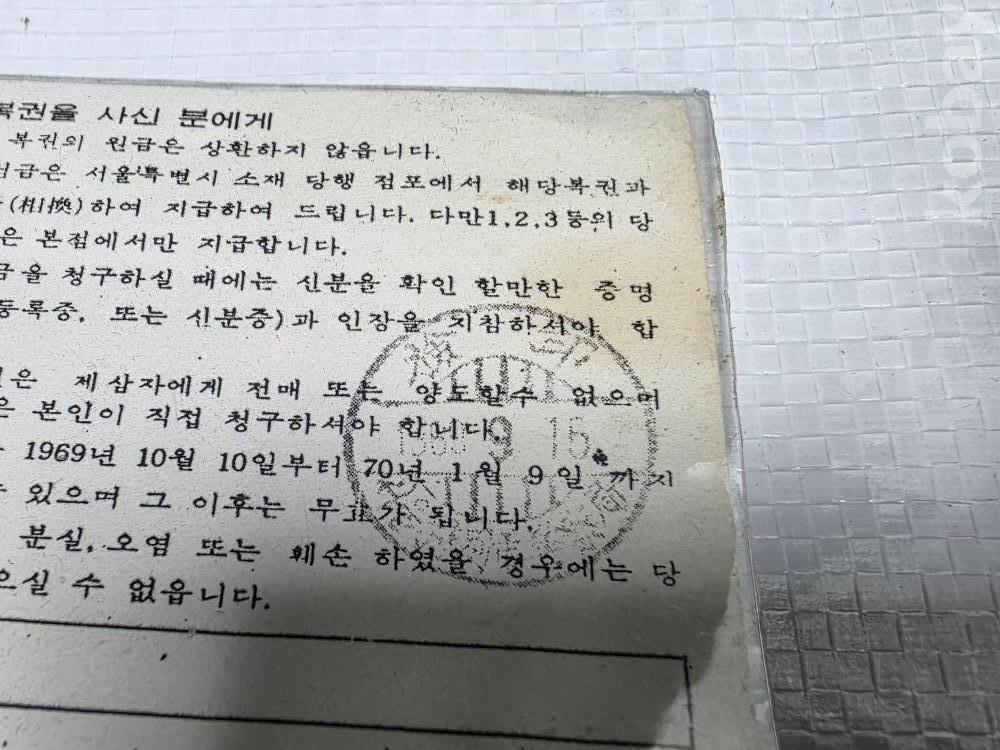 복권을 사신 분에게
복권의 원금은 상환하지 않읍니다.
서울특별시 소재 당행 점포에서 해당복권과
(相換)하여 지급하여 드립니다. 다만1,2,3등의 당
은 본점에서만 지급합니다.
금을 청구하실 때에는 신분을 확인 할만한 증명
등록증, 또는 신분증)과 인장을 지참하셔야 합
은 제삼자에게 전매 또는 양도할수 없으며
은 본인이 직접 청구하셔야 합니다.
1969년 10월 10일부터 70년 1월 9일 까지
있으며 그 이후는 무효가 됩니다.
분실, 오염 또는 훼손 하였을 경우에는 당
으실 수 없읍니다.
9 15
kobay